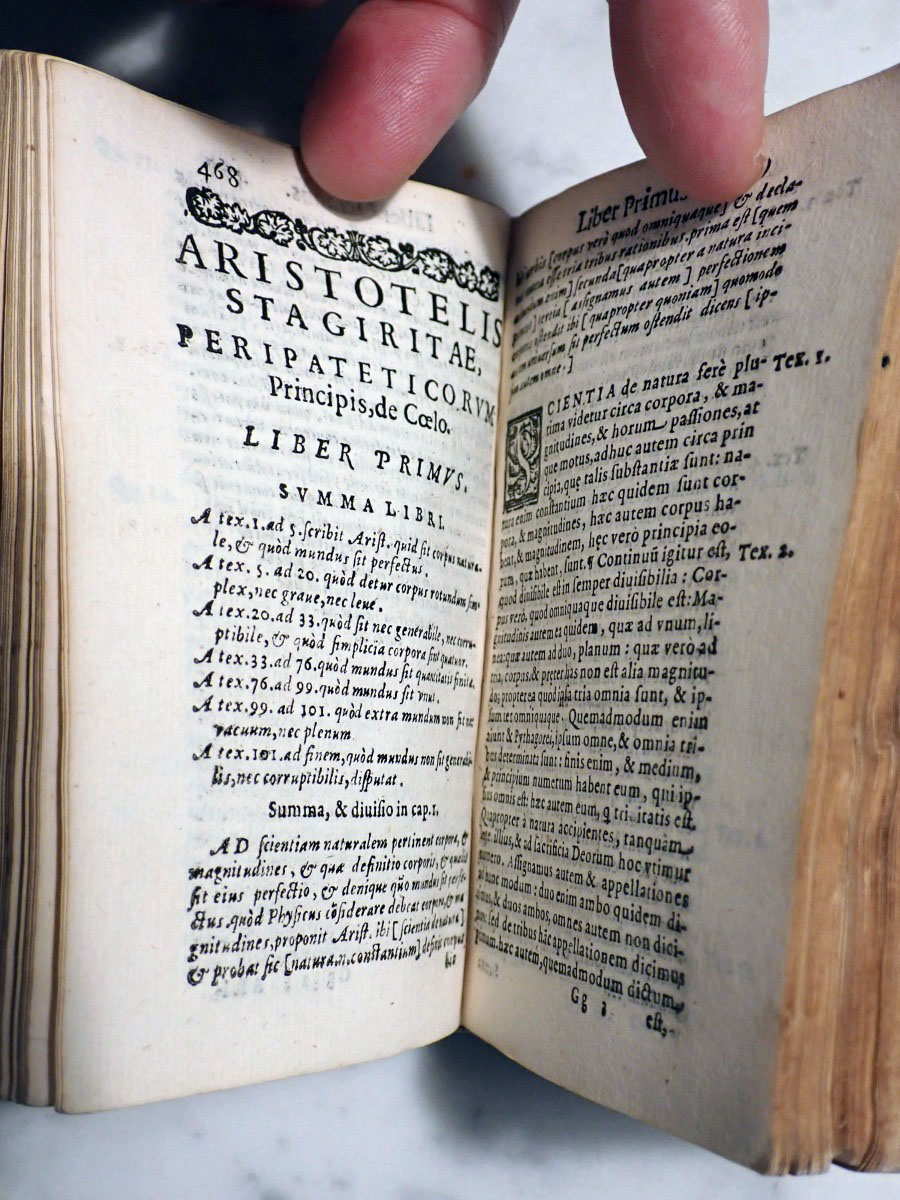 468
ARISTOTELIS
STAGIRITAE,
PERIPATETICORVM
Principis, de Cœlo.
LIBER PRIMVS.
SVMMA LIBRI.
A tex. 1. ad 5. scribit Arist. quid sit corpus natura-
le, & quòd mundus sit perfectus.
A tex. 5. ad 20. quòd detur corpus rotundum sim-
plex, nec graue, nec leue.
A tex. 20. ad 33. quòd sit nec generabile, nec corru-
ptibile, & quòd simplicia corpora sint quatuor.
A tex. 33. ad 76. quòd mundus sit quantitatis finitæ.
A tex. 76. ad 99. quòd mundus sit vnus.
A tex. 99. ad 101. quòd extra mundum non sit nec
vacuum, nec plenum
A tex. 101. ad finem, quòd mundus non sit generabi-
lis, nec corruptibilis, disputat.
Summa, & diuisio in cap. 1.
AD scientiam naturalem pertinent corpora, &
magnitudines, & quæ definitio corporis, & qualis
sit eius perfectio, & denique quō mundus sit perfe-
ctus. quòd Physicus cōsiderare debeat corpora, & ma
gnitudines, proponit Arist. ibi [scientia de natura]
& probat sic [naturam constantium] definit corpus
Liber Primus
[corpus verò quod omniquaque] & decla-
tribus rationibus. prima est [quem
enim] secunda [quapropter a natura inci-
tertia [assignamus autem] perfectionem
ostendit ibi [quapropter quoniam] quomodo
vniuersum sit perfectum ostendit dicens [ip-
autem omne.]
SCIENTIA de natura ferè plu- Tex. 1.
rima videtur circa corpora, & ma-
gnitudines, & horum passiones, at
que motus, adhuc autem circa prin
cipia, quę talis substantiæ sunt: na-
tura enim constantium hæc quidem sunt cor-
pora, & magnitudines, hæc autem corpus ha-
bent, & magnitudinem, hęc verò principia eo-
rum, quæ habent, sunt. ¶ Continuū igitur est, Tex. 2.
quod diuisibile est in semper diuisibilia: Cor-
pus verò, quod omniquaque diuisibile est: Ma-
gnitudinis autem ea quidem, quæ ad vnum, li-
nea: quæ autem ad duo, planum: quæ verò ad
tria, corpus. & præter has non est alia magnitu-
do; propterea quòd ipsa tria omnia sunt, & ip-
sum ter omniquaque. Quemadmodum enim
aiunt & Pythagorei, ipsum omne, & omnia tri-
bus determinata sunt: finis enim, & medium,
& principium numerum habent eum, qui ip-
sius omnis est: hæc autem eum, q̃ trinitatis est.
Quapropter à natura accipientes, tanquam
illius, & ad sacrificia Deorum hoc vtimur
numero. Assignamus autem & appellationes
ad hunc modum: duo enim ambo quidem di-
cimus, & duos ambos, omnes autem non dici-
mus: sed de tribus hāc appellationem dicimus
primum. hæc autem, quemadmodum dictum
Gg 2
est,